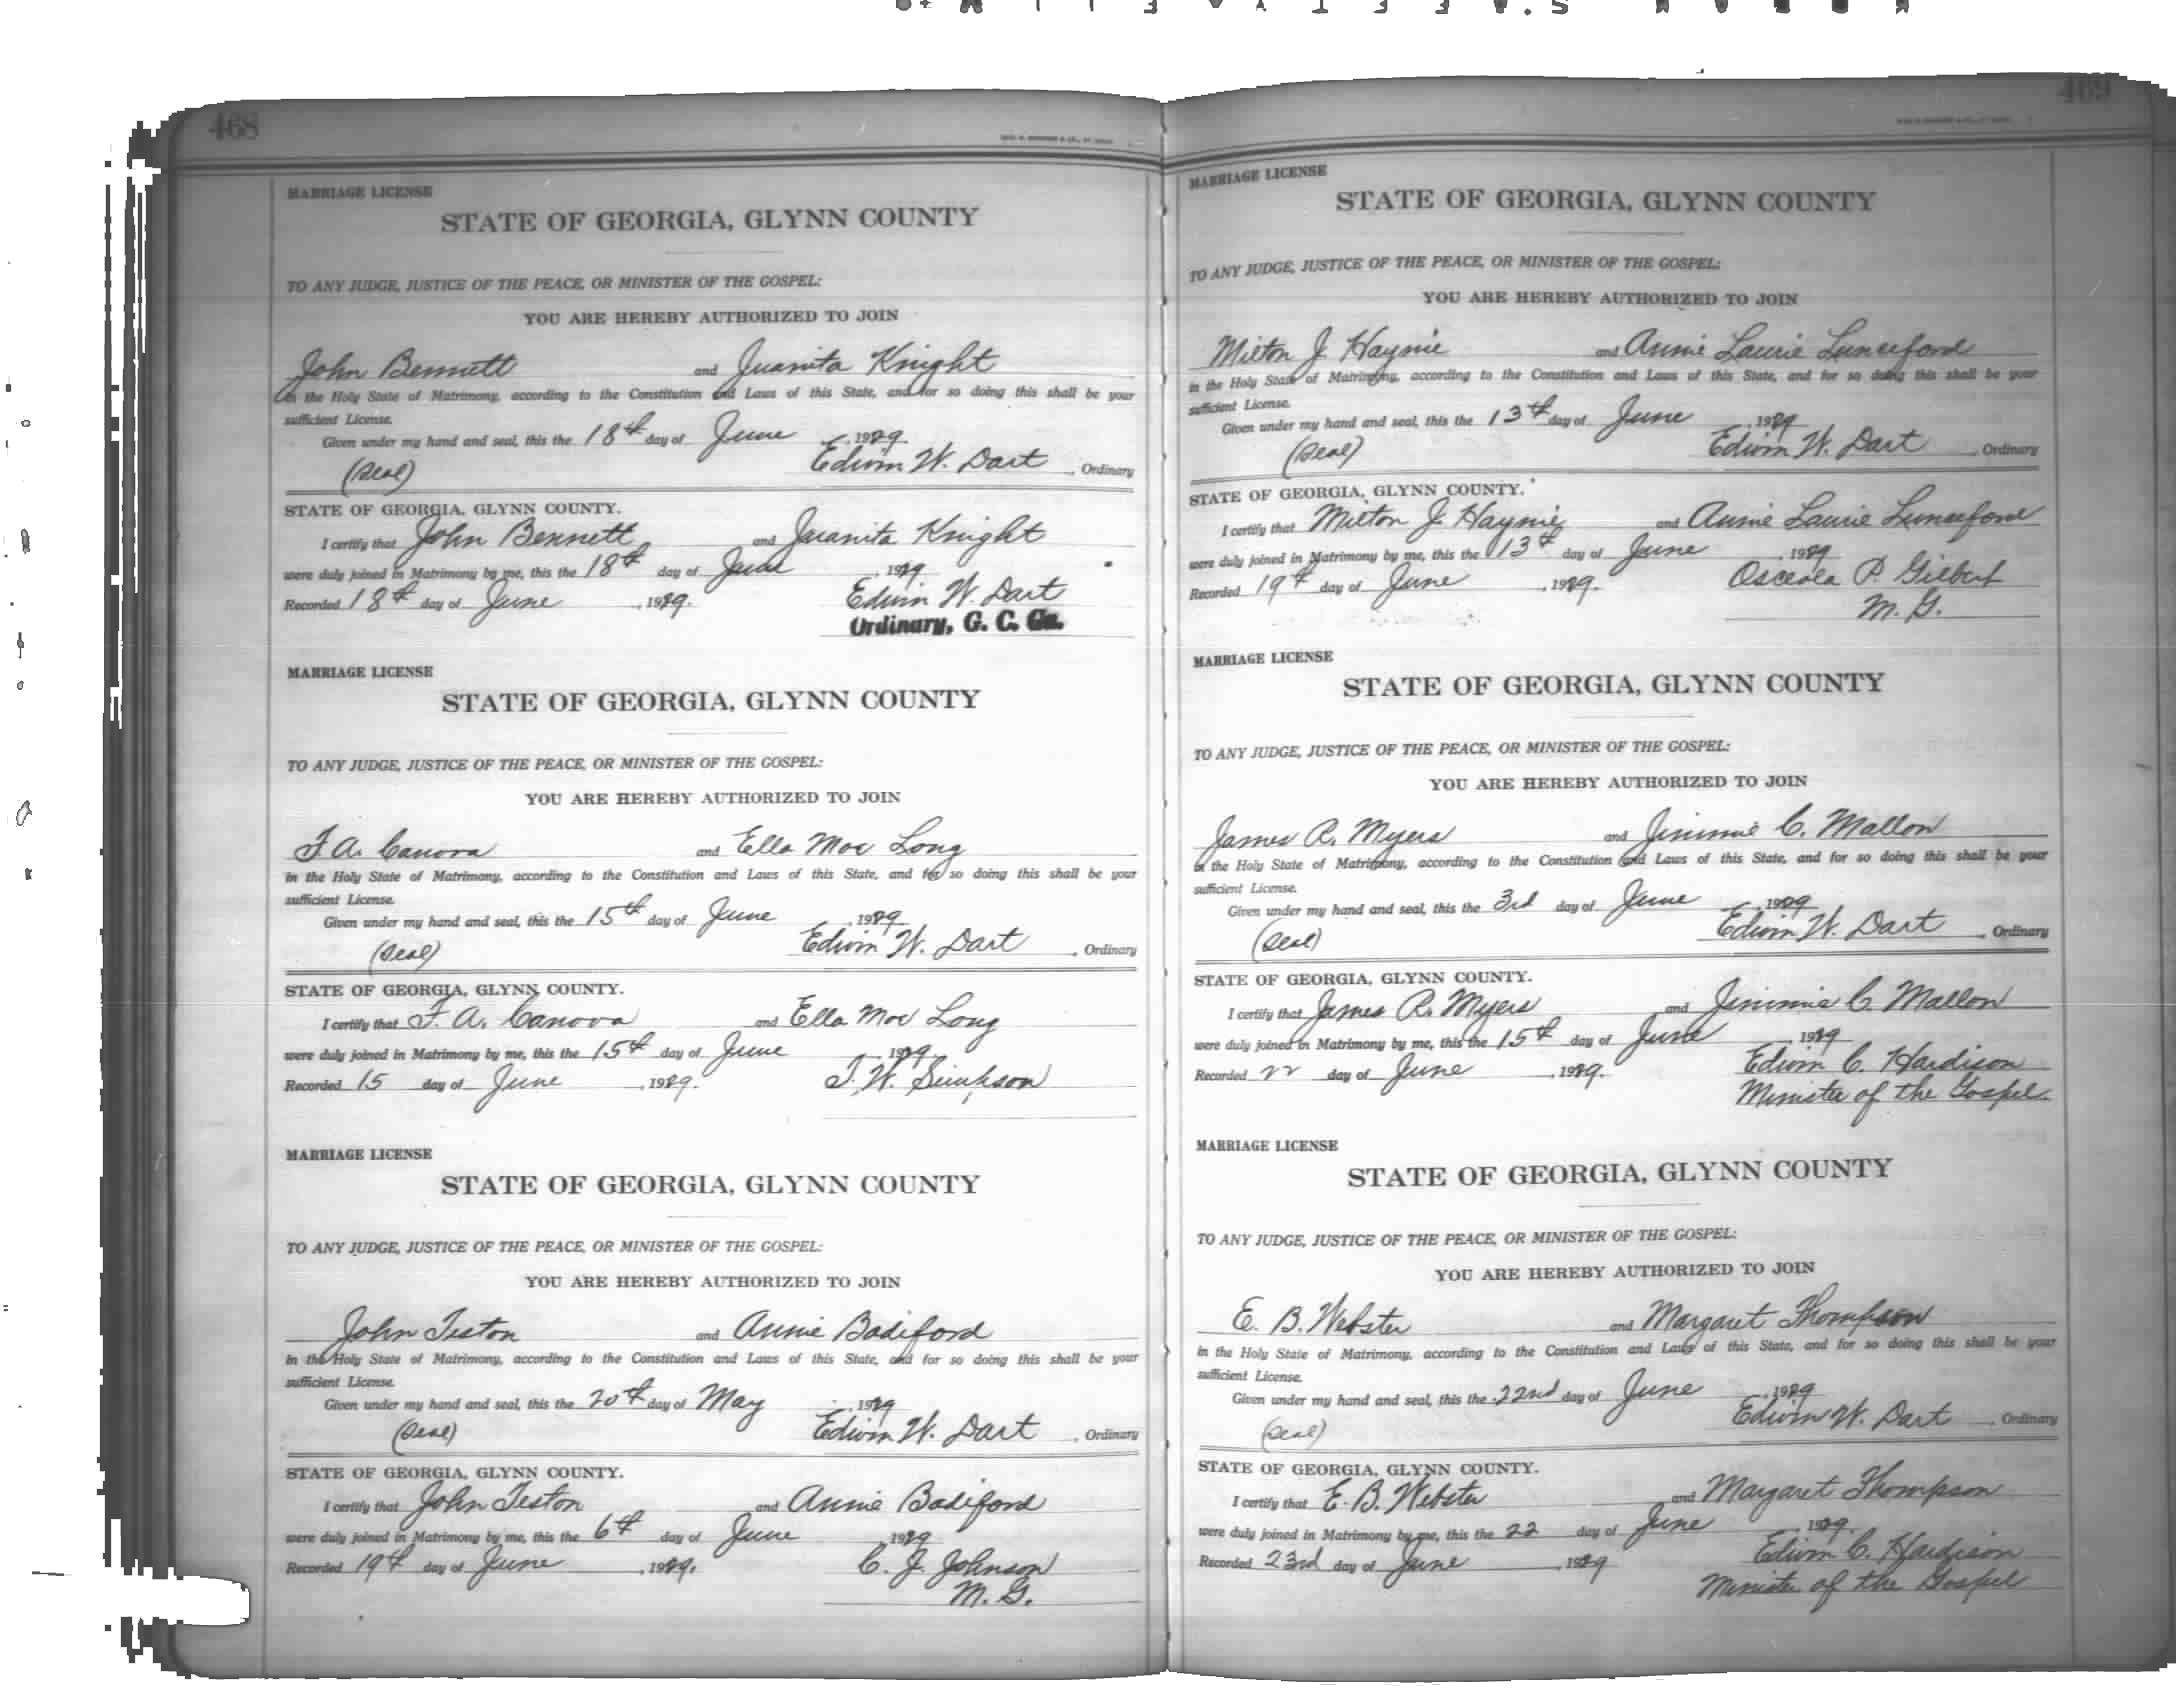 468
MARRIAGE LICENSE
STATE OF GEORGIA, GLYNN COUNTY
TO ANY JUDGE, JUSTICE OF THE PEACE, OR MINISTER OF THE GOSPEL:
YOU ARE HEREBY AUTHORIZED TO JOIN
John Bennett and Juanita Knight
in the Holy State of Matrimony, according to the Constitution and Laws of this State, and for so doing this shall be your
sufficient License.
Given under my hand and seal, this the 18th day of June, 1929
(Seal) Edwin W. Dart, Ordinary
STATE OF GEORGIA, GLYNN COUNTY.
I certify that John Bennett and Juanita Knight
were duly joined in Matrimony by me, this the 18th day of June, 1929.
Recorded 18th day of June, 1929. Edwin W. Dart
Ordinary, G. C. Ga.
MARRIAGE LICENSE
STATE OF GEORGIA, GLYNN COUNTY
TO ANY JUDGE, JUSTICE OF THE PEACE, OR MINISTER OF THE GOSPEL:
YOU ARE HEREBY AUTHORIZED TO JOIN
F. A. Canova and Ella Mae Long
in the Holy State of Matrimony, according to the Constitution and Laws of this State, and for so doing this shall be your
sufficient License.
Given under my hand and seal, this the 15th day of June, 1929
(Seal) Edwin W. Dart, Ordinary
STATE OF GEORGIA, GLYNN COUNTY.
I certify that F. A. Canova and Ella Mae Long
were duly joined in Matrimony by me, this the 15th day of June, 1929.
Recorded 15 day of June, 1929. T. W. Simpson
MARRIAGE LICENSE
STATE OF GEORGIA, GLYNN COUNTY
TO ANY JUDGE, JUSTICE OF THE PEACE, OR MINISTER OF THE GOSPEL:
YOU ARE HEREBY AUTHORIZED TO JOIN
John Teston and Annie Badiford
in the Holy State of Matrimony, according to the Constitution and Laws of this State, and for so doing this shall be your
sufficient License.
Given under my hand and seal, this the 20th day of May, 1929
(Seal) Edwin W. Dart, Ordinary
STATE OF GEORGIA, GLYNN COUNTY.
I certify that John Teston and Annie Badiford
were duly joined in Matrimony by me, this the 6th day of June, 1929
Recorded 19th day of June, 1929. C. J. Johnson
M. G.
469
MARRIAGE LICENSE
STATE OF GEORGIA, GLYNN COUNTY
TO ANY JUDGE, JUSTICE OF THE PEACE, OR MINISTER OF THE GOSPEL:
YOU ARE HEREBY AUTHORIZED TO JOIN
Milton J. Haynie and Annie Laurie Lunceford
in the Holy State of Matrimony, according to the Constitution and Laws of this State, and for so doing this shall be your
sufficient License.
Given under my hand and seal, this the 13th day of June, 1929
(Seal) Edwin W. Dart, Ordinary
STATE OF GEORGIA, GLYNN COUNTY.
I certify that Milton J. Haynie and Annie Laurie Lunceford
were duly joined in Matrimony by me, this the 13th day of June, 1929
Recorded 19th day of June, 1929. Osceola P. Gilbert
M. G.
MARRIAGE LICENSE
STATE OF GEORGIA, GLYNN COUNTY
TO ANY JUDGE, JUSTICE OF THE PEACE, OR MINISTER OF THE GOSPEL:
YOU ARE HEREBY AUTHORIZED TO JOIN
James R. Myers and Jimmie C. Mallon
in the Holy State of Matrimony, according to the Constitution and Laws of this State, and for so doing this shall be your
sufficient License.
Given under my hand and seal, this the 3rd day of June, 1929
(Seal) Edwin W. Dart, Ordinary
STATE OF GEORGIA, GLYNN COUNTY.
I certify that James R. Myers and Jimmie C. Mallon
were duly joined in Matrimony by me, this the 15th day of June 1929
Recorded 22 day of June, 1929. Edwin C. Hardison
Minister of the Gospel.
MARRIAGE LICENSE
STATE OF GEORGIA, GLYNN COUNTY
TO ANY JUDGE, JUSTICE OF THE PEACE, OR MINISTER OF THE GOSPEL:
YOU ARE HEREBY AUTHORIZED TO JOIN
E. B. Webster and Margaret Thompson
in the Holy State of Matrimony, according to the Constitution and Laws of this State, and for so doing this shall be your
sufficient License.
Given under my hand and seal, this the 22nd day of June, 1929
(Seal) Edwin W. Dart, Ordinary
STATE OF GEORGIA, GLYNN COUNTY.
I certify that E. B. Webster and Margaret Thompson
were duly joined in Matrimony by me, this the 22 day of June, 1929.
Recorded 23rd day of June, 1929 Edwin C. Hardison
Minister of the Gospel